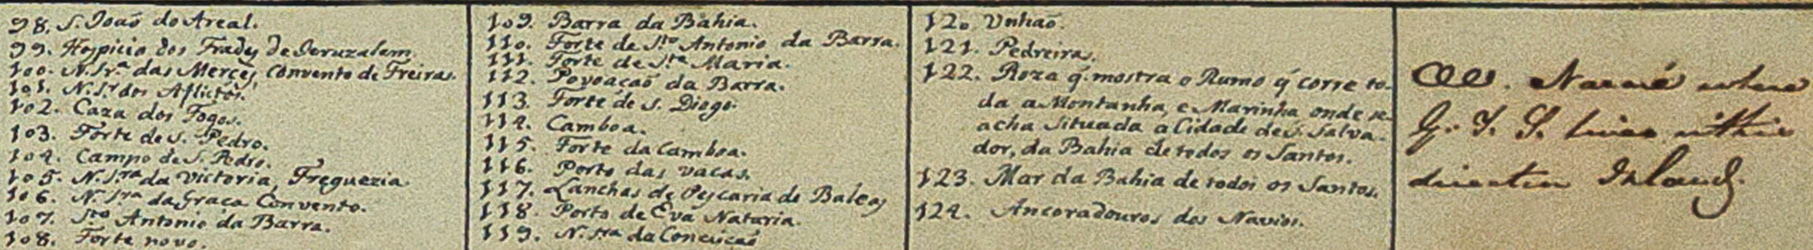 98. S. Joaõ do Areal.
99. Hospicio dos Frades de Jeruzalem.
100. N. Sr.ª das Merces, Convento de Freiras.
101. N. Sr.ª dos Aflictos.
102. Caza dos Fogos.
103. Forte de S. Pedro.
104. Campo de S. Pedro.
105. N. S.ra da Victoria, Freguezia.
106. N. S.ra da Graca Convento.
107. S.to Antonio da Barra.
108. Forte novo.
109. Barra da Bahia.
110. Forte de S.to Antonio da Barra.
111. Forte de S.ta Maria.
112. Povoacaõ da Barra.
113. Forte de S. Diogo.
114. Camboa.
115. Forte da Camboa.
116. Porto das vacas.
117. Lanchas de Pescaria de Baleas
118. Porto de
119. N. S.ra da Conceicaõ
120. Unhaõ.
121. Pedreiras.
122. Roza q̃ mostra o Rumo q̃ corre to-
da a Montanha, e Marinha onde se
acha Situada a Cidade de S. Salva-
dor, da Bahia de todos os Santos.
123. Mar da Bahia de todos os Santos.
124. Ancoradouros dos Navios.
where
G. F. S. lives within
direction Island